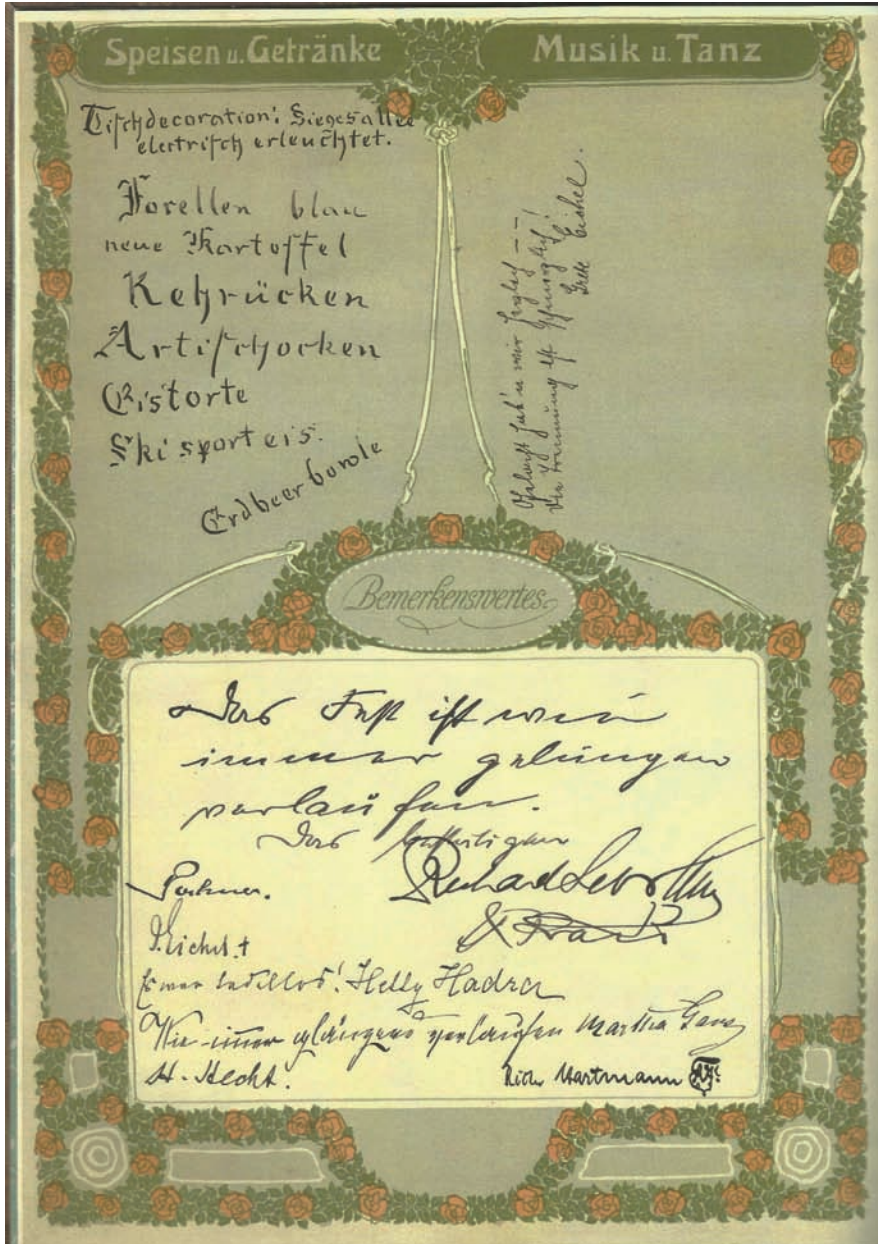 Speisen u. Getränke
Musik u. Tanz
Tischdecoration: Siegesallee
electrisch erleuchtet.
Forellen blau
neue Kartoffel
Rehrücken
Artischocken
Eistorte
Ski sporteis.
Erdbeerbowle
Gelacht hab'n wir
die Trennung ist
Grete Eichel.
Bemerkenswertes
Das Fest ist wie
immer gelungen
verlaufen.
Das bestätigen
Richard
Eichel. +
Es war tadellos! Helly Hadra
Wie immer glänzend verlaufen Martha
H. Hecht.
Hartmann